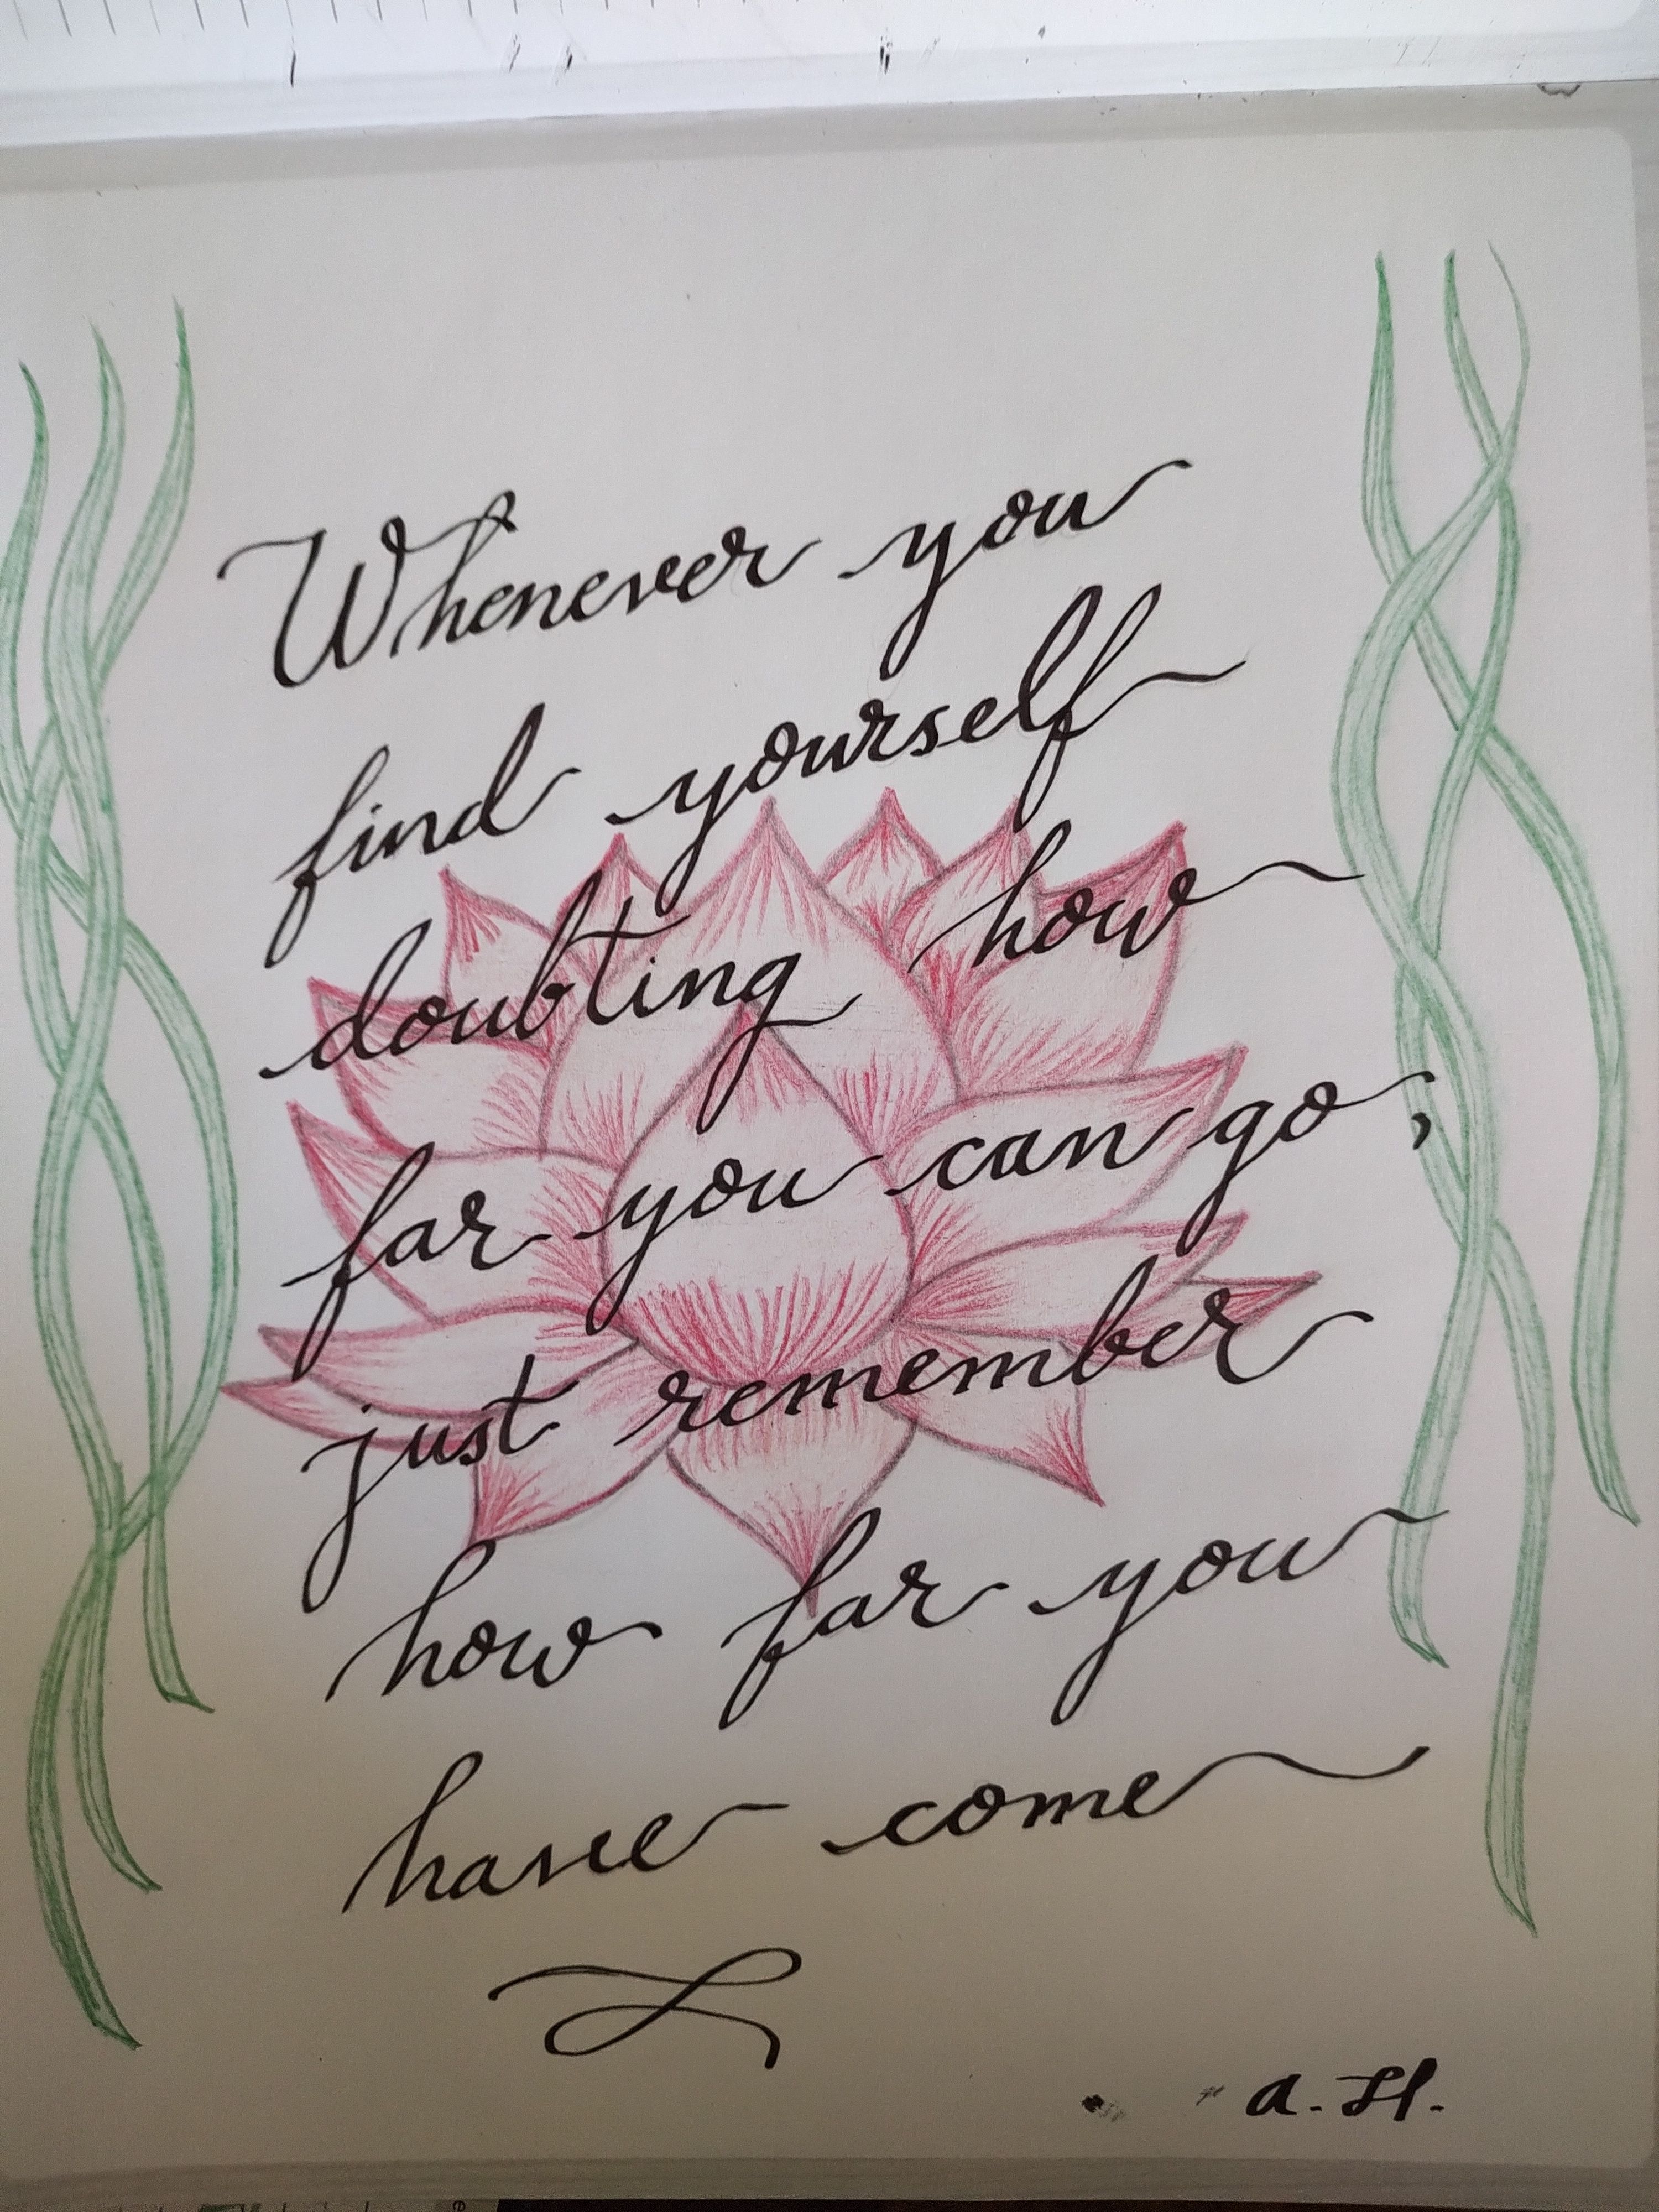 Whenever you
find yourself
doubting how
far you can go,
just remember
how far you
have come
a.H.